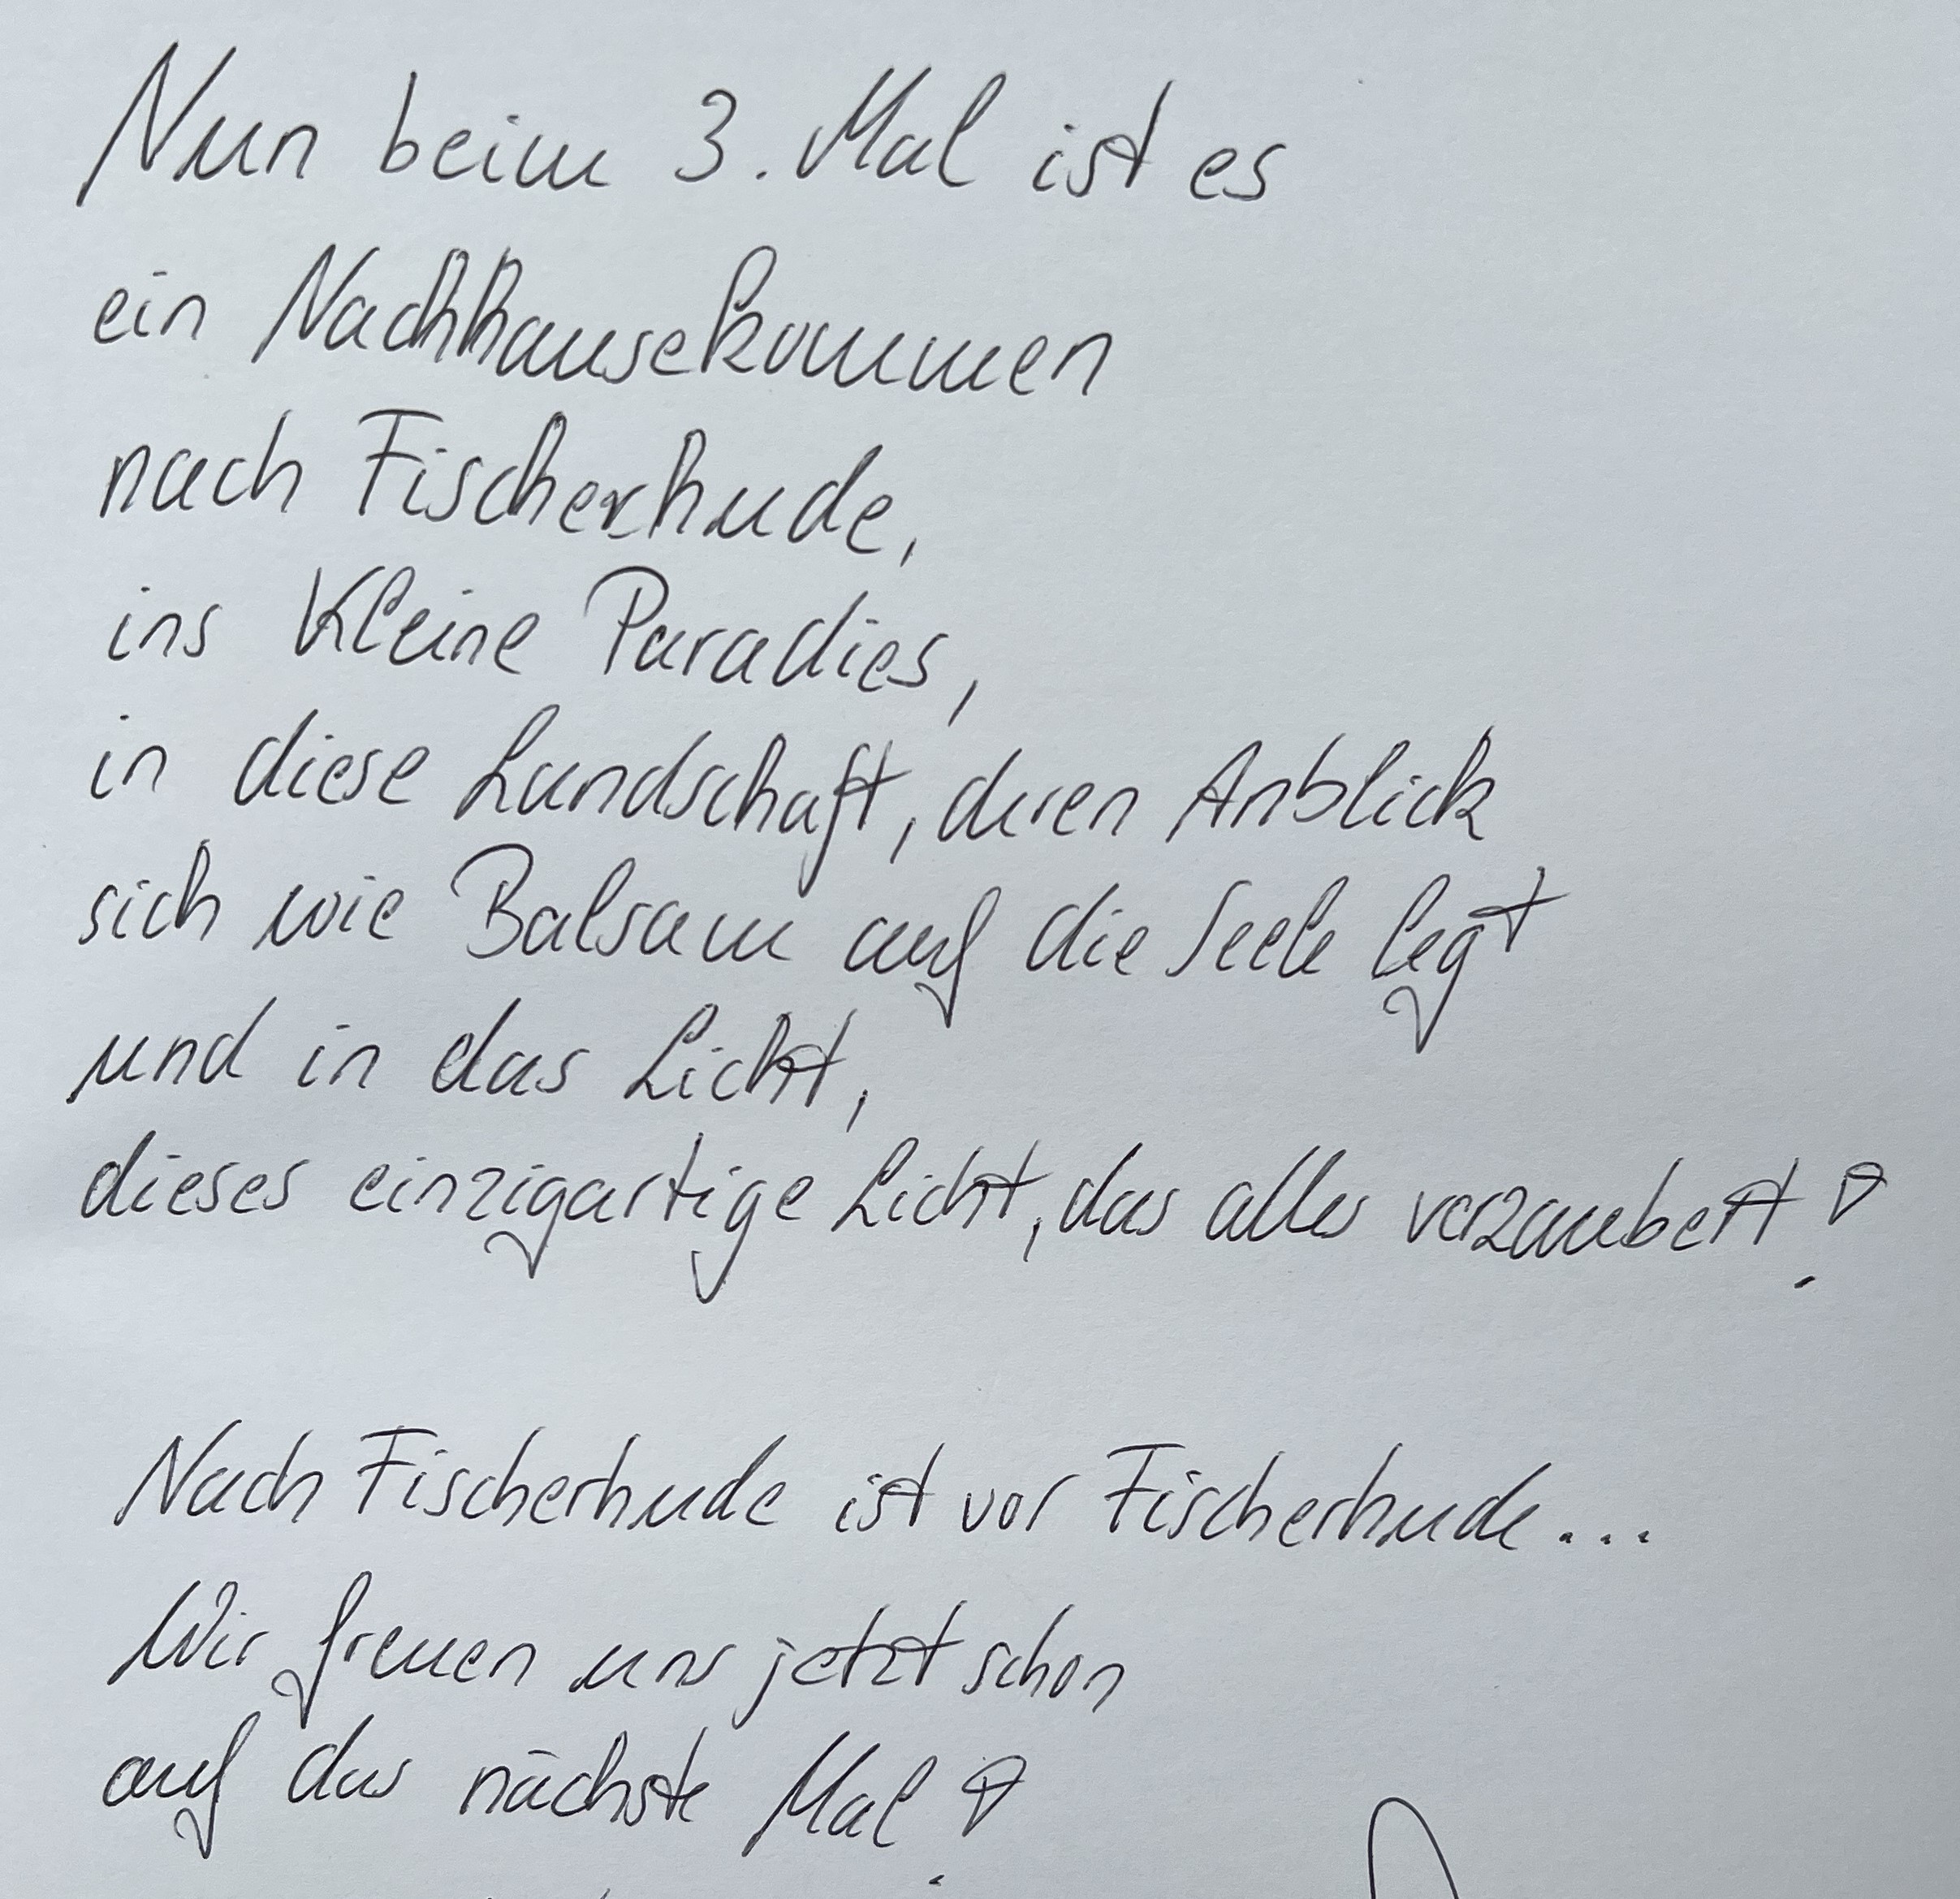 Nun beim 3. Mal ist es
ein Nachhausekommen
nach Fischerhude,
ins Kleine Paradies,
in diese Landschaft, deren Anblick
sich wie Balsam auf die Seele legt
und in das Licht,
dieses einzigartige Licht, das alles verzaubert!
Nach Fischerhude ist vor Fischerhude...
Wir freuen uns jetzt schon
auf das nächste Mal!